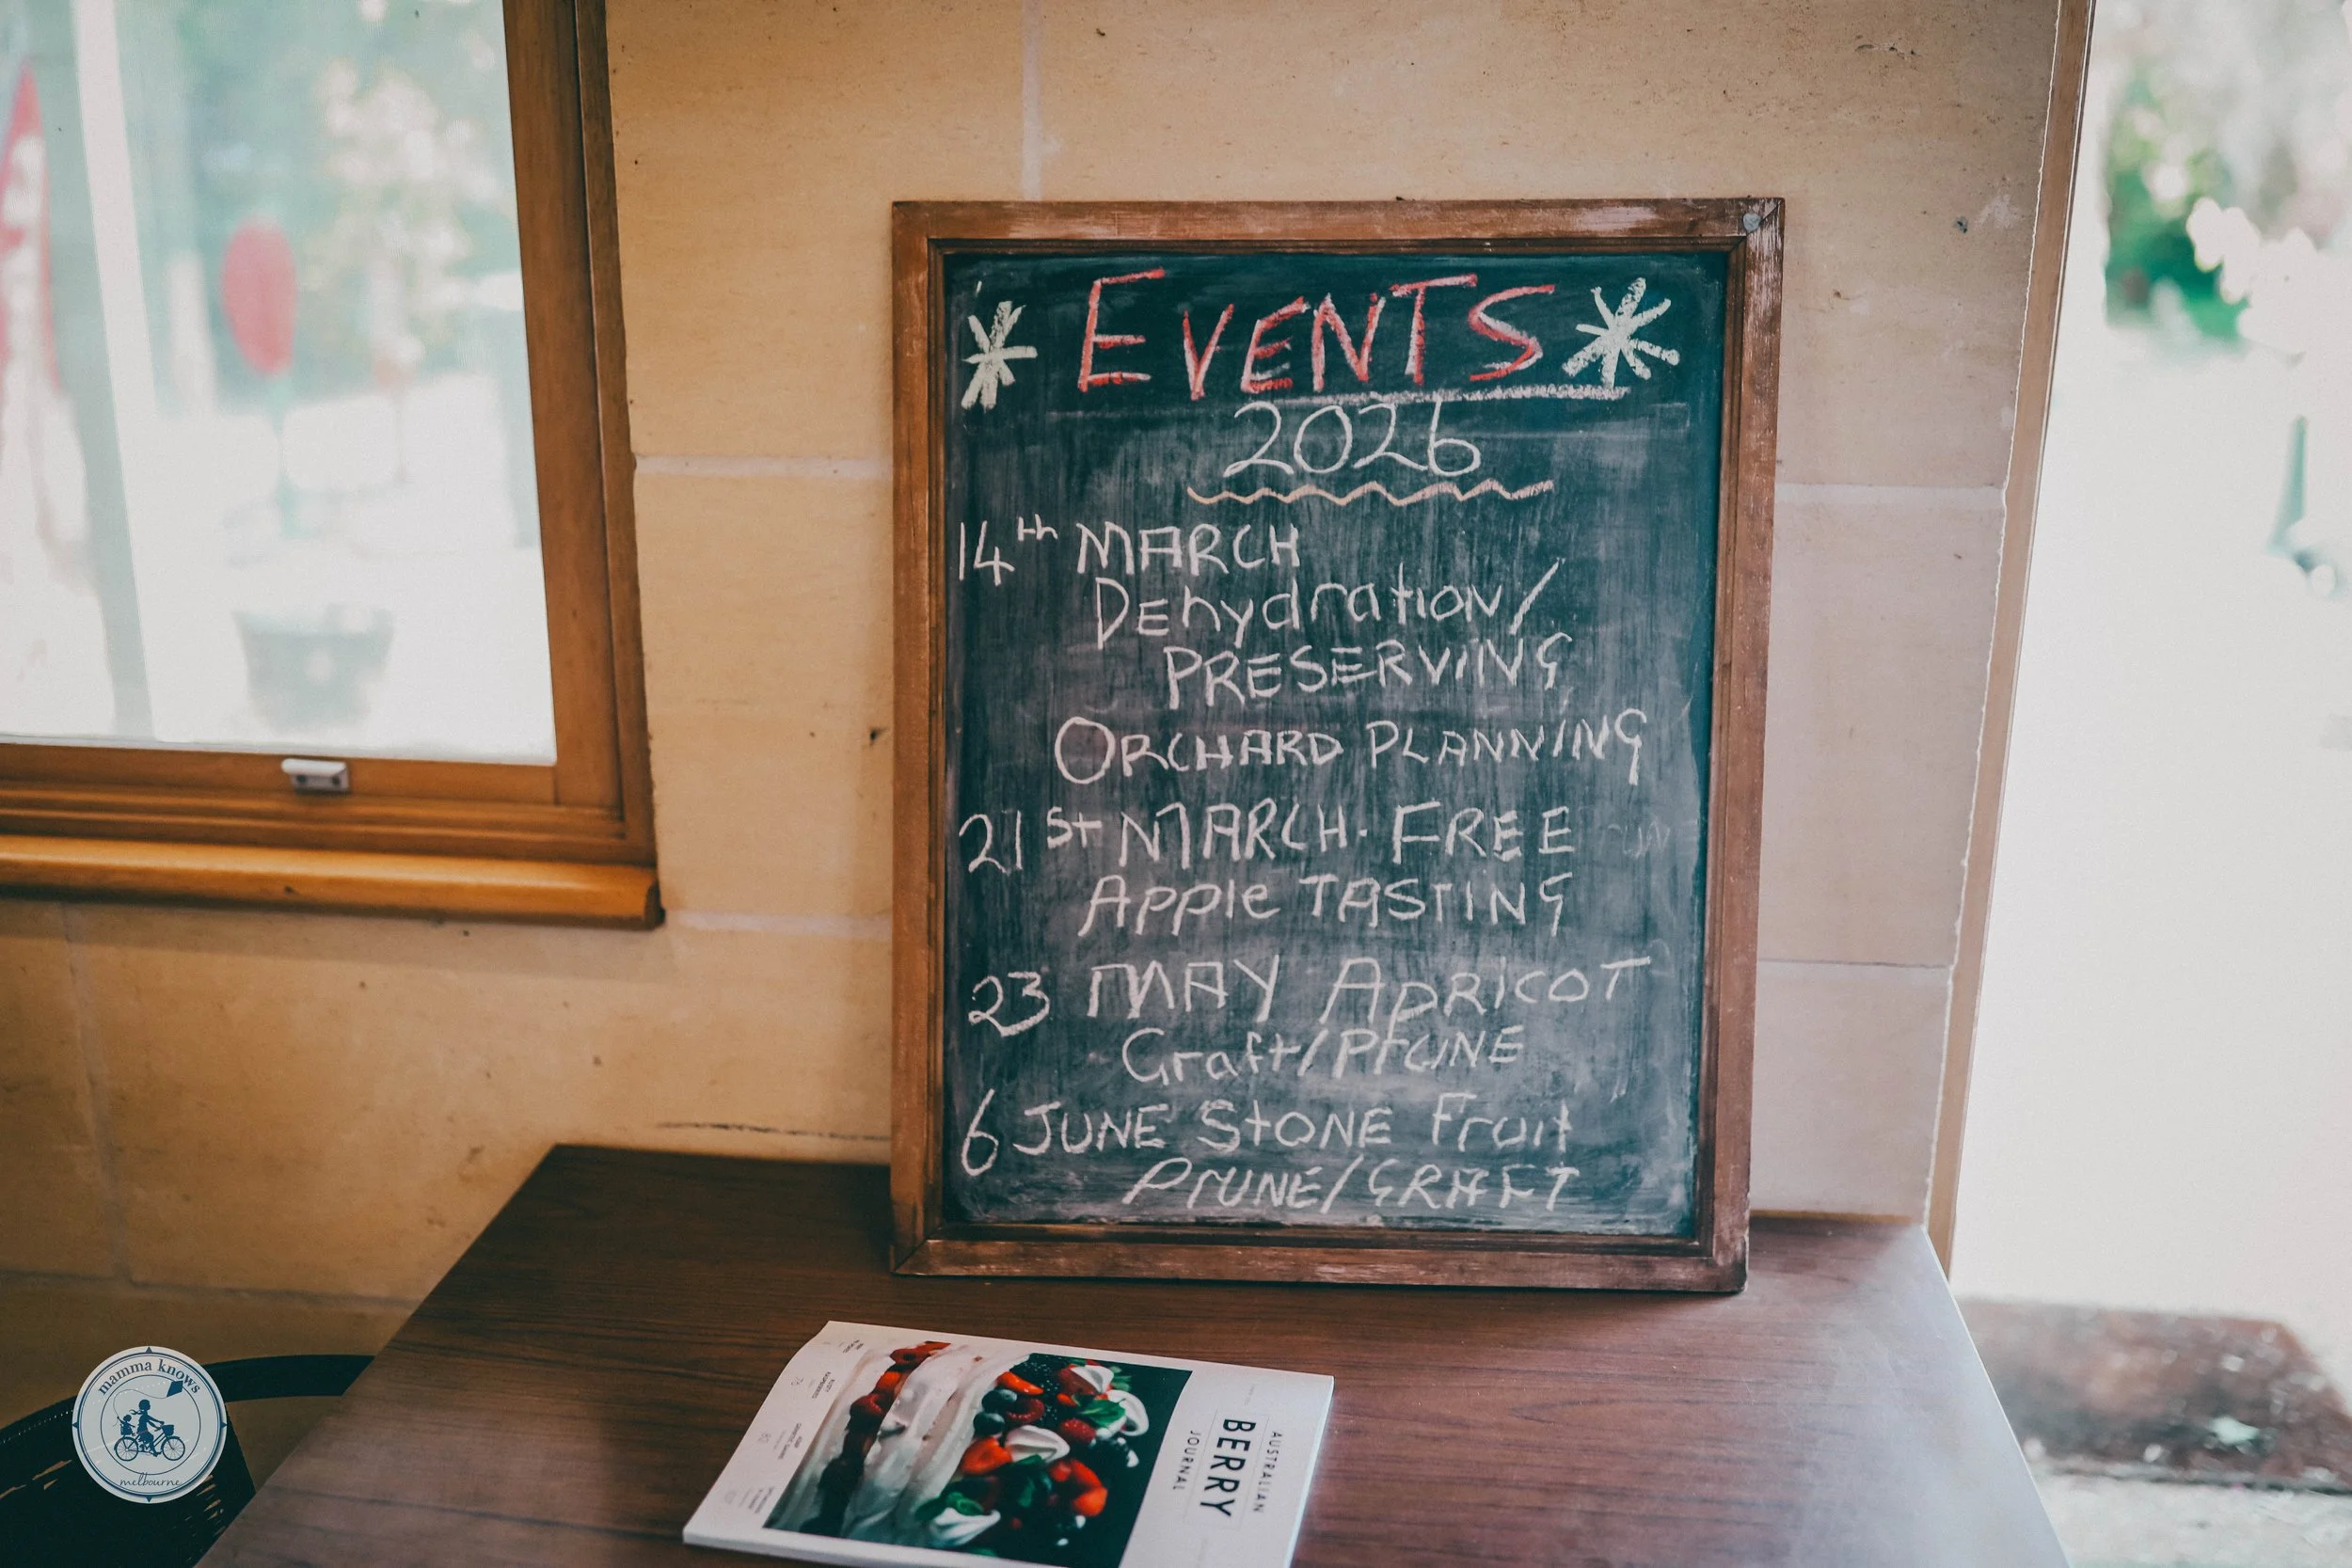 EVENTS
2026
14th MARCH
DEhydration/
PRESERVING
ORCHARD PLANNING
21st MARCH. FREE
Apple TASTING
23 MAY APRICOT
Graft/PrUNE
6 JUNE StONE Fruit
PrUNE/GRAFT
AUSTRALIAN
BERRY
JOURNAL
mamma knows
melbourne